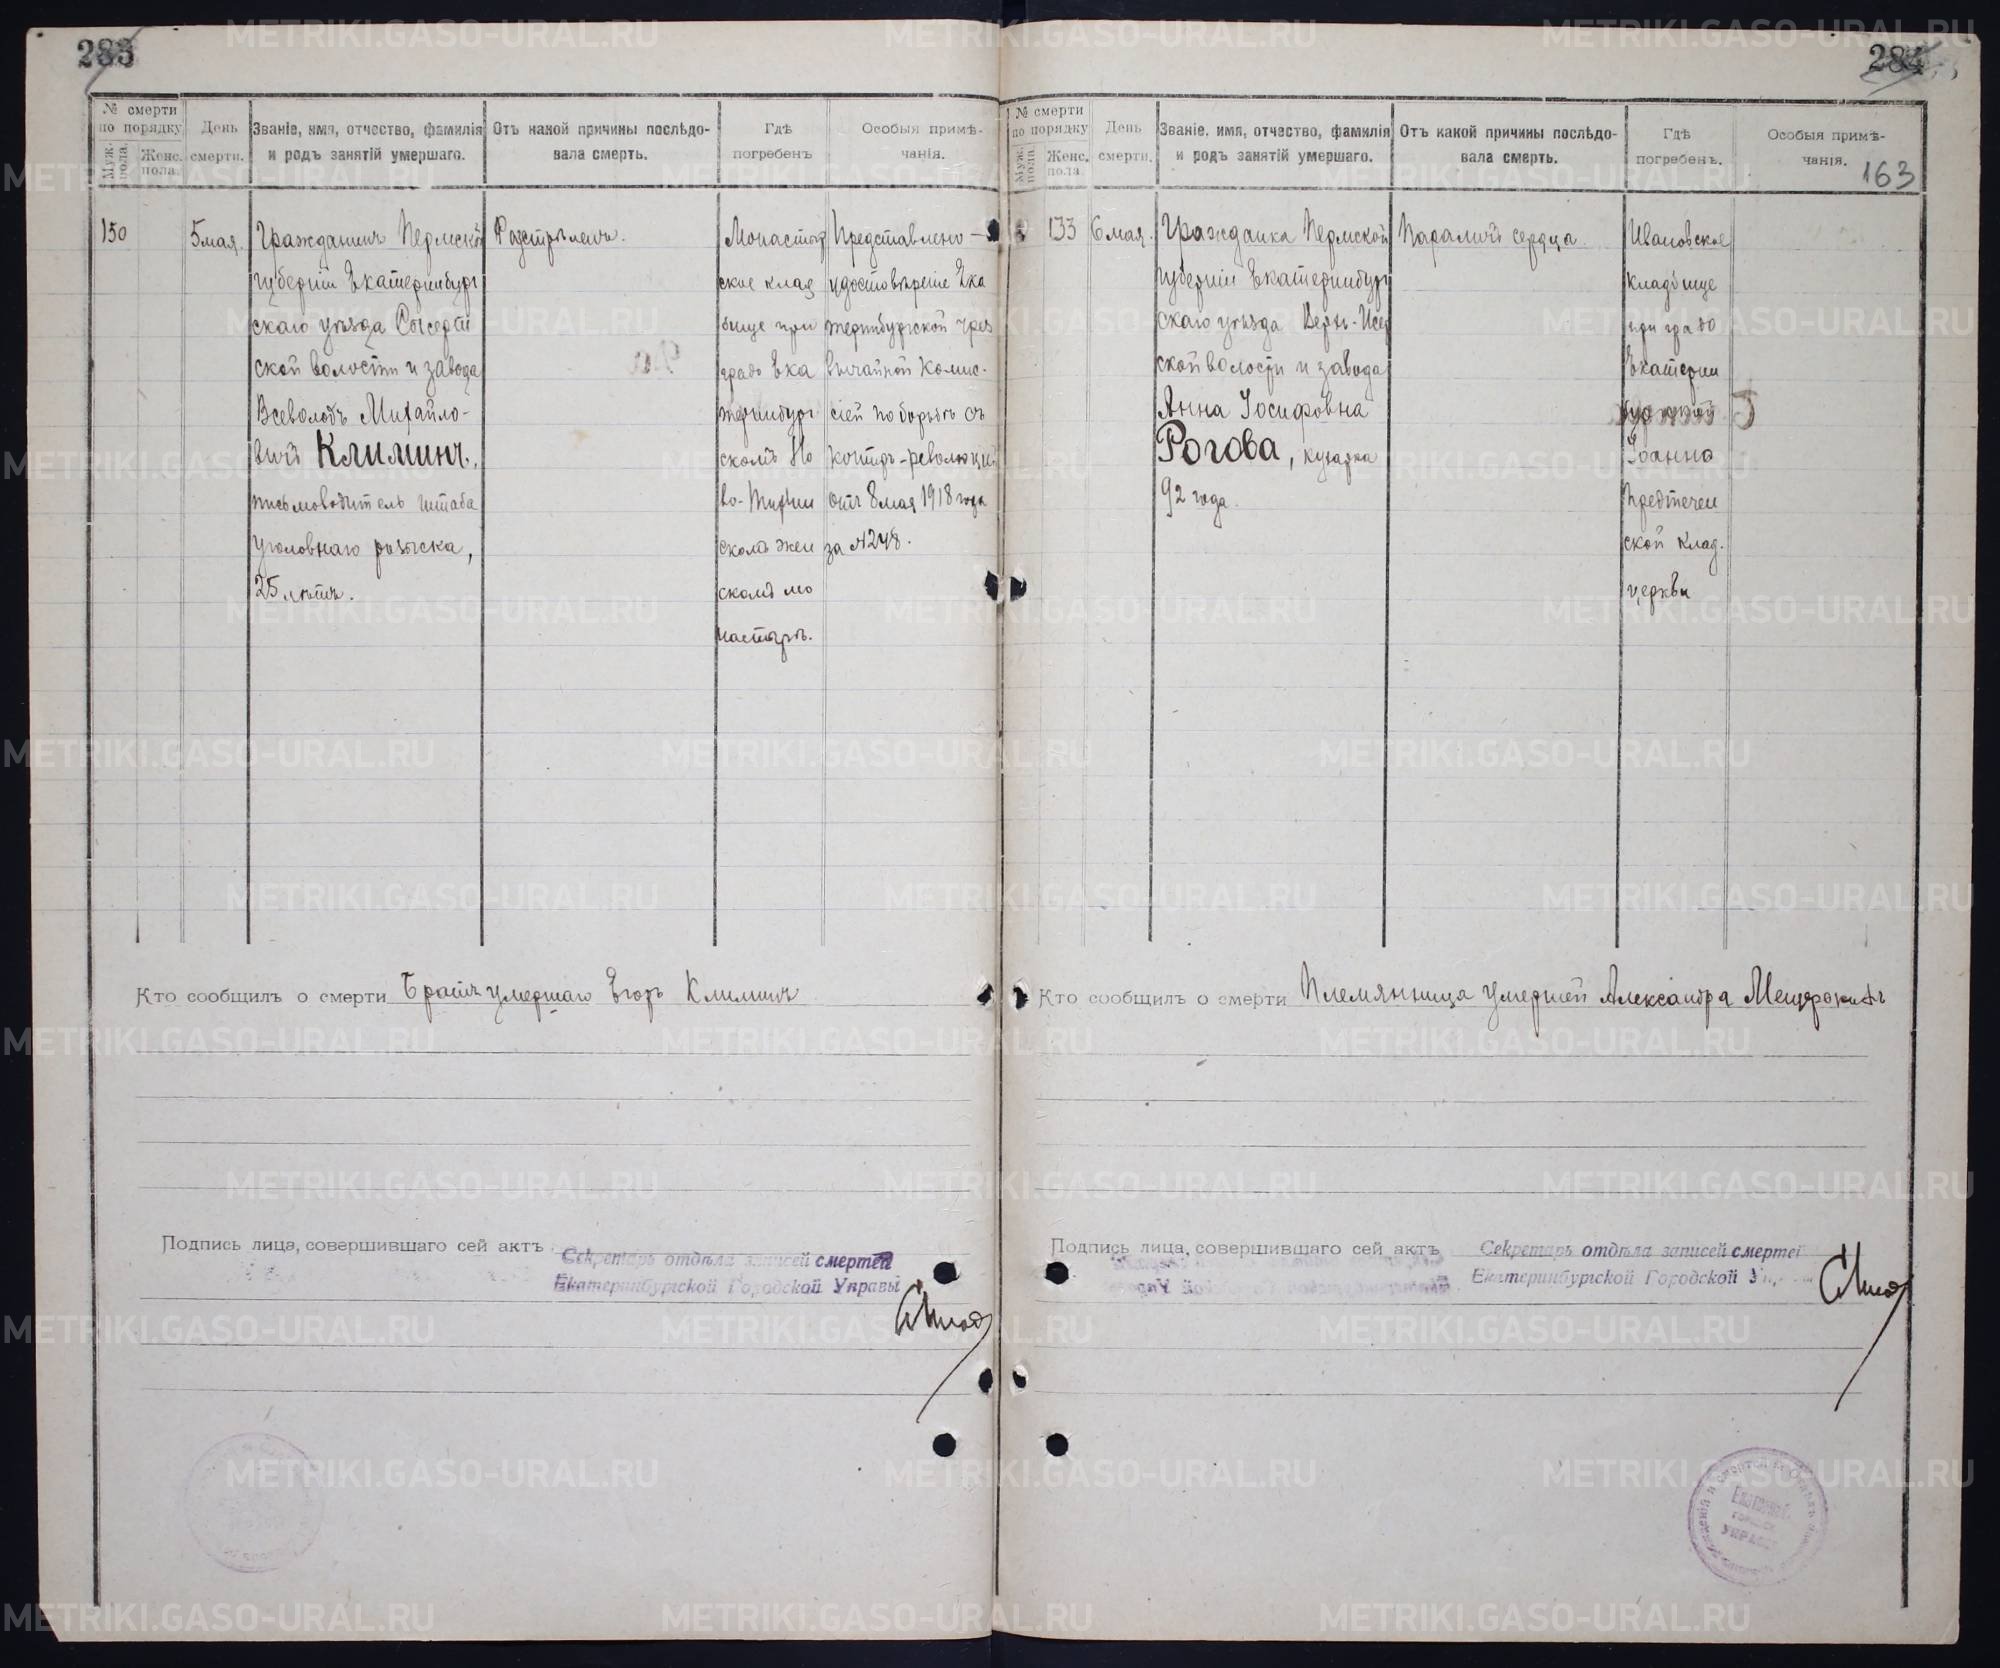 283
№ смерти по порядку
Муж. пола.
Женс. пола.
День смерти.
Званіе, имя, отчество, фамилія и родъ занятій умершаго.
Отъ какой причины послѣдо-
вала смерть.
Гдѣ погребенъ
Особыя примѣ-
чанія.
150
5 мая.
Гражданинъ Пермской
губерніи Екатеринбург
скаго уѣзда Сысерт
ской волости и завода
Всеволодъ Михайло-
вичъ Климинъ,
письмоводитель штаба
уголовнаго розыска,
25 лѣтъ.
Разстрѣленъ.
Монастыр
ское клад
бище при
градо Ека
теринбург
скомъ Но
во-Тихвин
скомъ жен
скомъ мо
настырѣ.
Представлено
удостовѣреніе Ека
теринбургской чрез
вычайной комис-
сіей по борьбѣ съ
контръ-революціей
отъ 8 мая 1918 года
за №248.
Кто сообщилъ о смерти Братъ умершаго Егоръ Климинъ
Подпись лица, совершившаго сей актъ
Секретарь отдѣла записей смертей
Екатеринбургской Городской Управы
284
163
№ смерти по порядку
Муж. пола.
Женс. пола
День смерти.
Званіе, имя, отчество, фамилія и родъ занятій умершаго.
Отъ какой причины послѣдо-
вала смерть.
Гдѣ погребенъ.
Особыя примѣ-
чанія.
133
6 мая.
Гражданка Пермской
губерніи Екатеринбург
скаго уѣзда Верхъ-Исет
ской волости и завода
Анна Іосифовна
Рогова,
92 года.
Параличъ сердца.
Ивановское
кладбище
при градо
Екатерин
бургской
Іоанно
Предтечен
ской клад.
церкви
Кто сообщилъ о смерти Племянница умершей Александра Мещерякова
Подпись лица, совершившаго сей актъ
Секретарь отдѣла записей смертей
Екатеринбургской Городской
METRIKI.GASO-URAL.RU